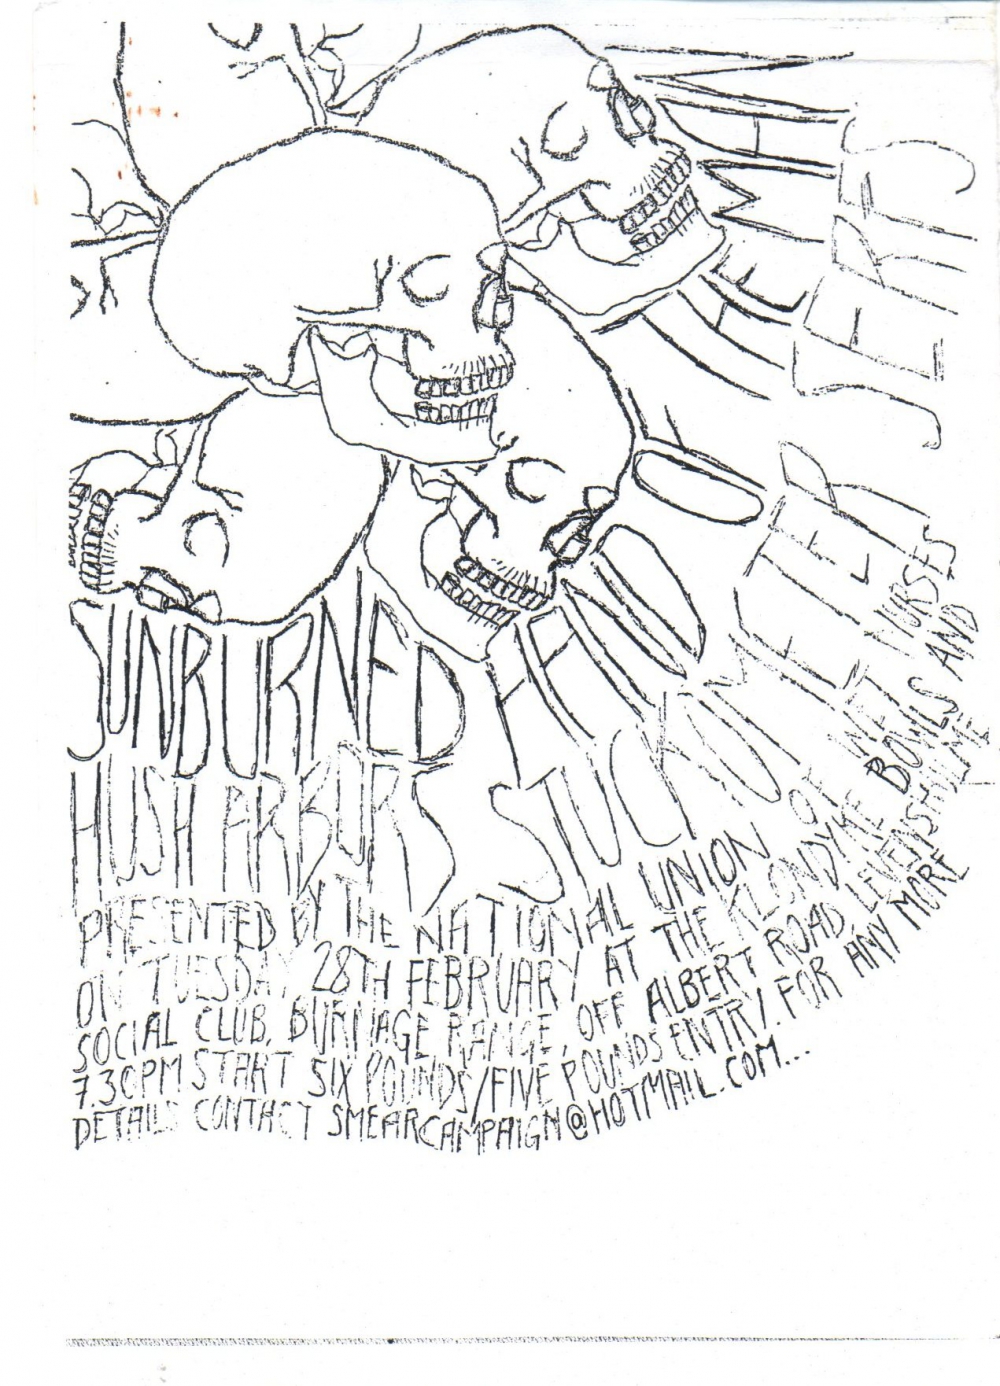 SUNBURNED HAND OF THE MAN
HUSH ARBORS STUCKOMETER
PRESENTED BY THE NATIONAL UNION OF WET NURSES
ON TUESDAY 28TH FEBRUARY AT THE KLONDYKE BOWLS AND
SOCIAL CLUB, BURNAGE RANGE, OFF ALBERT ROAD LEVENSHULME
7.30PM START SIX POUNDS/FIVE POUNDS ENTRY. FOR ANY MORE
DETAILS CONTACT SMEARCAMPAIGN@HOTMAIL.COM...